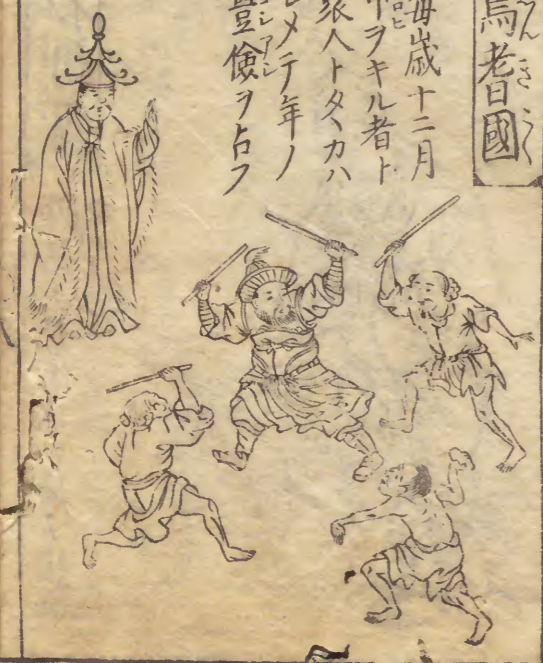 焉耆國
んきこく
毎歳十二月
甲ヲキル者ト
衆人トタヽカハ
シメテ年ノ
豐儉ヲ占フ